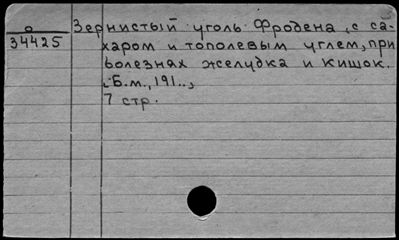 0
34425
Зернистый уголь Фродена, с са-
харом и тополевым углем, при
болезнях желудка и кишок.
Б.м., 191..,
7 стр.